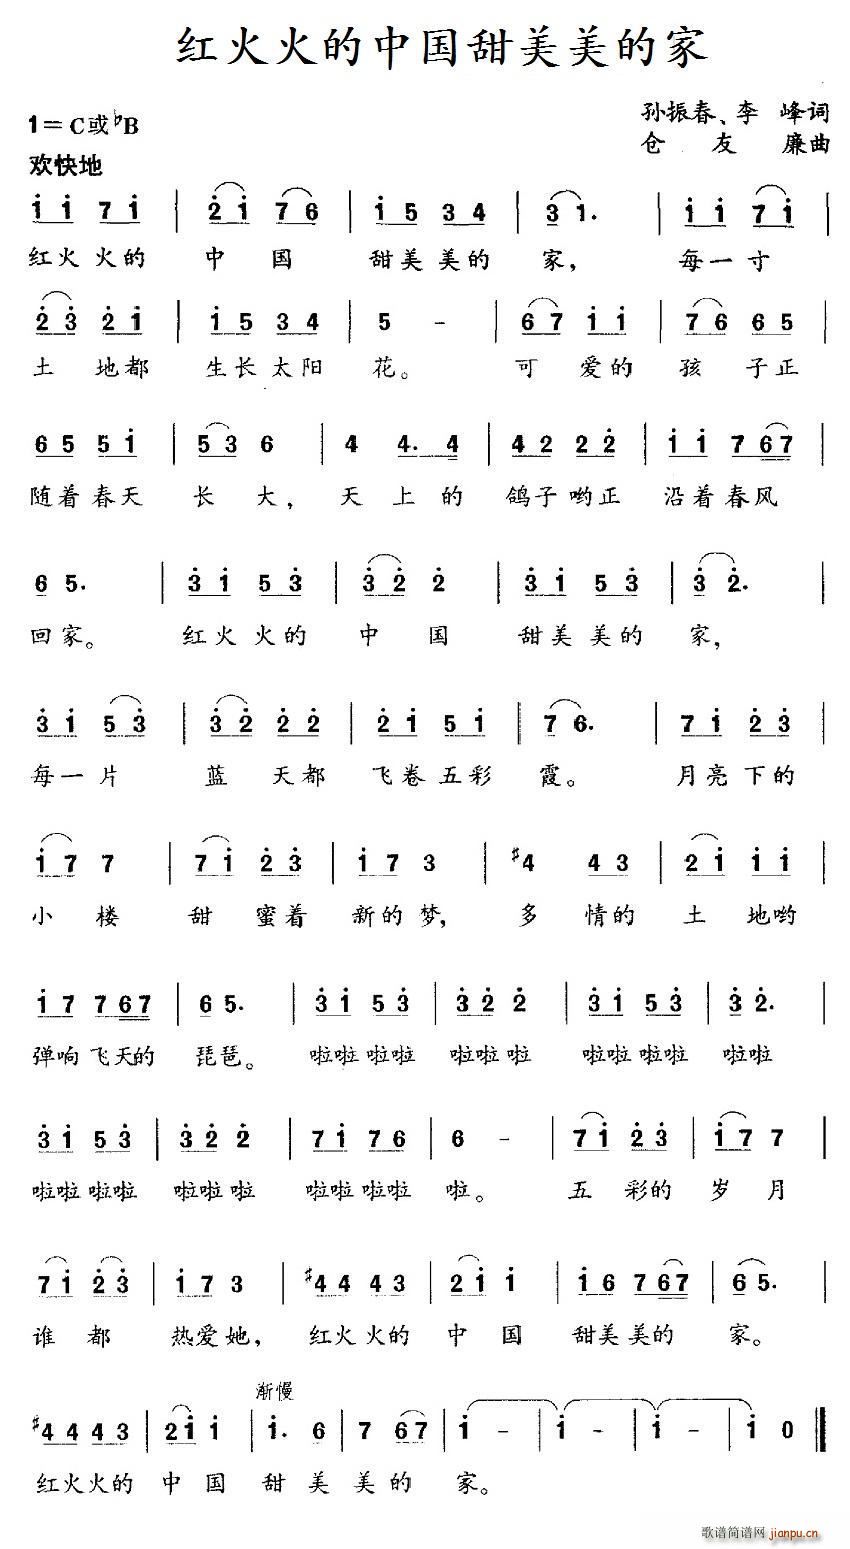 红火火的中国甜美美的家
1=C或♭B
孙振春、李 峰词
仓 友 廉曲
欢快地
i i 7 i | 2̇ i 7 6 | i 5 3 4 | 3 1. | i i 7 i |
红火火的 中 国 甜美美的 家， 每一寸
2̇ 3̇ 2̇ i | i 5 3 4 | 5 - | 6 7 i i | 7 6 6 5 |
土 地都 生长太阳 花。 可 爱的 孩 子正
6 5 5 i | 5 3 6 | 4 4. 4 | 4 2 2 2̇ | i i 7 6 7 |
随着春天 长 大， 天 上 的 鸽子哟正 沿着春风
6 5. | 3̇ i 5 3̇ | 3̇ 2̇ 2̇ | 3̇ i 5 3̇ | 3̇ 2̇. |
回家。 红火火的 中 国 甜美美的 家，
3̇ i 5 3̇ | 3̇ 2̇ 2̇ 2̇ | 2̇ i 5 i | 7 6. | 7 i 2̇ 3̇ |
每一片 蓝 天都 飞卷五彩 霞。 月亮下的
i 7 7 | 7 i 2̇ 3̇ | i 7 3 | #4 4 3 | 2̇ i i i |
小 楼 甜 蜜着 新的梦， 多 情的 土 地哟
i 7 7 6 7 | 6 5. | 3̇ i 5 3̇ | 3̇ 2̇ 2̇ | 3̇ i 5 3̇ | 3̇ 2̇. |
弹响飞天的 琵琶。 啦啦啦啦 啦啦啦 啦啦啦啦 啦啦
3̇ i 5 3̇ | 3̇ 2̇ 2̇ | 7 i 7 6 | 6 - | 7 i 2̇ 3̇ | i 7 7 |
啦啦啦啦 啦啦啦 啦啦啦啦 啦。 五 彩的 岁 月
7 i 2̇ 3̇ | i 7 3 | #4 4 4 3 | 2 i i | i 6 7 6 7 | 6 5. |
谁 都 热爱她， 红火火的 中 国 甜美美的 家。
渐慢
#4 4 4 3 | 2 i i | i. 6 | 7 6 7 | i - | i - | i - | i 0 ‖
红火火的 中国 甜 美 美 的 家。
歌谱简谱网 jianpu.cn